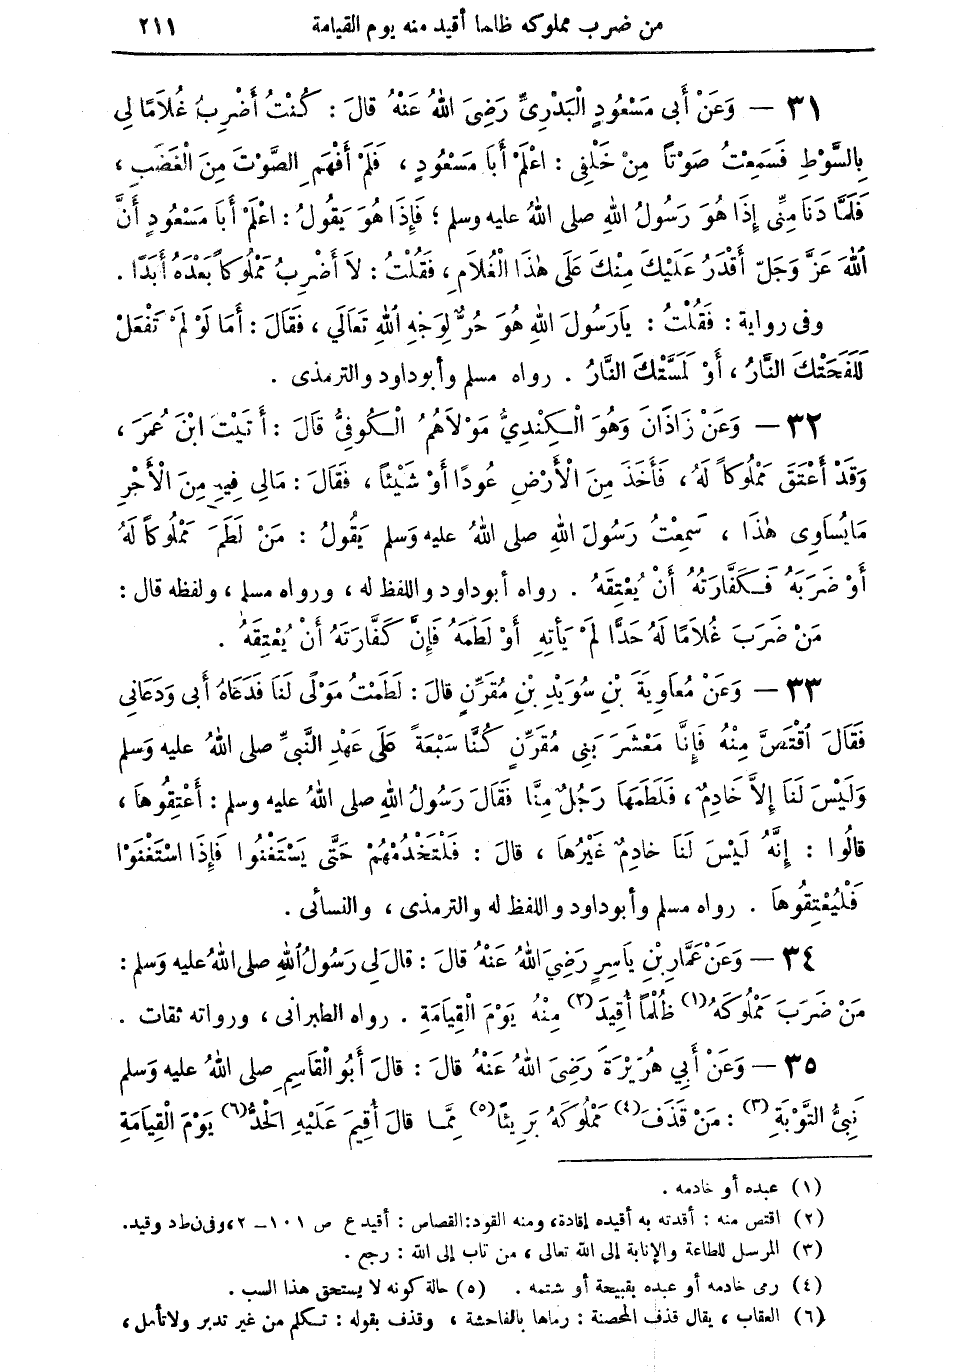 من ضرب مملوكه ظلما أقيد منه يوم القيامة ٢١١
٣١ — وَعَنْ أَبِى مَسْعُودٍ الْبَدْرِىِّ رَضِىَ اللهُ عَنْهُ قالَ : كُنْتُ أَضْرِبُ غُلَامًا لِى
بِالسَّوْطِ فَسَمِعْتُ صَوْتاً مِنْ خَلْفِى : اعْلَمْ أَبَا مَسْعُودٍ ، فَلَمْ أَفْهَمِ الصَّوْتَ مِنَ الْغَضَبِ ،
فَلَمَّا دَنَا مِنِّى إِذَا هُوَ رَسُولُ اللهِ صلى اللهُ عليه وسلم ؛ فَإِذَا هُوَ يَقُولُ : اعْلَمْ أَبَا مَسْعُودٍ أَنَّ
اللهَ عَزَّ وَجَلّ أَقْدَرُ عَلَيْكَ مِنْكَ عَلَى هٰذَا الْغُلَامِ ، فَقُلْتُ : لاَ أَضْرِبُ مَمْلُوكاً بَعْدَهُ أَبَدًا .
وفى رواية : فَقُلْتُ : يارَسُولَ اللهِ هُوَ حُرٌّ لِوَجْهِ اللهِ تَعَالَي ، فَقَالَ : أَمَا لَوْ لَمْ تَفْعَلْ
لَلَفَحَتْكَ النَّارُ ، أَوْ لَمَسَّتْكَ النَّارُ . رواه مسلم وأبوداود والترمذى .
٣٢ — وَعَنْ زَاذَانَ وَهُوَ الْكِنْدِيُّ مَوْلَاهُمُ الْكُوفِىُّ قَالَ : أَتَيْتُ ابْنَ عُمَرَ ،
وَقَدْ أَعْتَقَ مَمْلُوكاً لَهُ ، فَأَخَذَ مِنَ الْأَرْضِ عُودًا أَوْ شَيْئاً ، فَقَالَ : مَالِى فِيهِ مِنَ الْأَجْرِ
مَايُسَاوِى هٰذَا ، سَمِعْتُ رَسُولَ اللهِ صلى اللهُ عليه وسلم يَقُولُ : مَنْ لَطَمَ مَمْلُوكاً لَهُ
أَوْ ضَرَبَهُ فَكَفَّارَتُهُ أَنْ يُعْتِقَهُ . رواه أبوداود واللفظ له ، ورواه مسلم ، ولفظه قال :
مَنْ ضَرَبَ غُلَامًا لَهُ حَدًّا لَمْ يَأْتِهِ أَوْ لَطَمَهُ فَإِنَّ كَفَّارَتَهُ أَنْ يُعْتِقَهُ .
٣٣ — وَعَنْ مُعَاوِيَةَ بْنِ سُوَيْدِ بْنِ مُقَرِّنٍ قالَ : لَطَمْتُ مَوْلًى لَنَا فَدَعَاهُ أَبِى وَدَعَانِى
فَقَالَ اقْتَصَّ مِنْهُ فَإِنَّا مَعْشَرَ بَنِى مُقَرِّنٍ كُنَّا سَبْعَةً عَلَى عَهْدِ النَّبِىِّ صلى اللهُ عليه وسلم
وَلَيْسَ لَنَا إِلاَّ خَادِمٌ ، فَلَطَمَهَا رَجُلٌ مِنَّا فَقَالَ رَسُولُ اللهِ صلى اللهُ عليه وسلم : أَعْتِقُوهَا ،
قالُوا : إِنَّهُ لَيْسَ لَنَا خادِمٌ غَيْرُهَا ، قالَ : فَلْتَخْدُمْهُمْ حَتَّى يَسْتَغْنُوا فَإِذَا اسْتَغْنَوْا
فَلْيُعْتِقُوهَا . رواه مسلم وأبوداود واللفظ له والترمذى ، والنسائى .
٣٤ — وَعَنْ عَمَّارِ بْنِ يَاسِرٍ رَضِيَ اللهُ عَنْهُ قالَ : قالَ لِى رَسُولُ اللهِ صلى اللهُ عليه وسلم :
مَنْ ضَرَبَ مَمْلُوكَهُ (١) ظُلْماً أُقِيدَ (٢) مِنْهُ يَوْمَ الْقِيَامَةِ . رواه الطبرانى ، ورواته ثقات .
٣٥ — وَعَنْ أَبِي هُرَيْرَةَ رَضِىَ اللهُ عَنْهُ قالَ : قالَ أَبُو الْقَاسِمِ صلى اللهُ عليه وسلم
نَبِىُّ التَّوْبَةِ (٣) : مَنْ قَذَفَ (٤) مَمْلُوكَهُ بَرِيئاً (٥) مِمَّا قالَ أُقِيمَ عَلَيْهِ الْحَدُّ (٦) يَوْمَ الْقِيَامَةِ
(١) عبده أو خادمه .
(٢) اقتص منه : أقدته به أقيده إقادة، ومنه القود:القصاص : أقيد ع ص ١٠١ — ٢، وفى ن ط د وقيد.
(٣) المرسل للطاعة والإنابة إلى الله تعالى ، من تاب إلى الله : رجع .
(٤) رمى خادمه أو عبده بقبيحة أو شتمه . (٥) حالة كونه لا يستحق هذا السب .
(٦) العقاب ، يقال قذف المحصنة : رماها بالفاحشة ، وقذف بقوله : تكلم من غير تدبر ولاتأمل ،